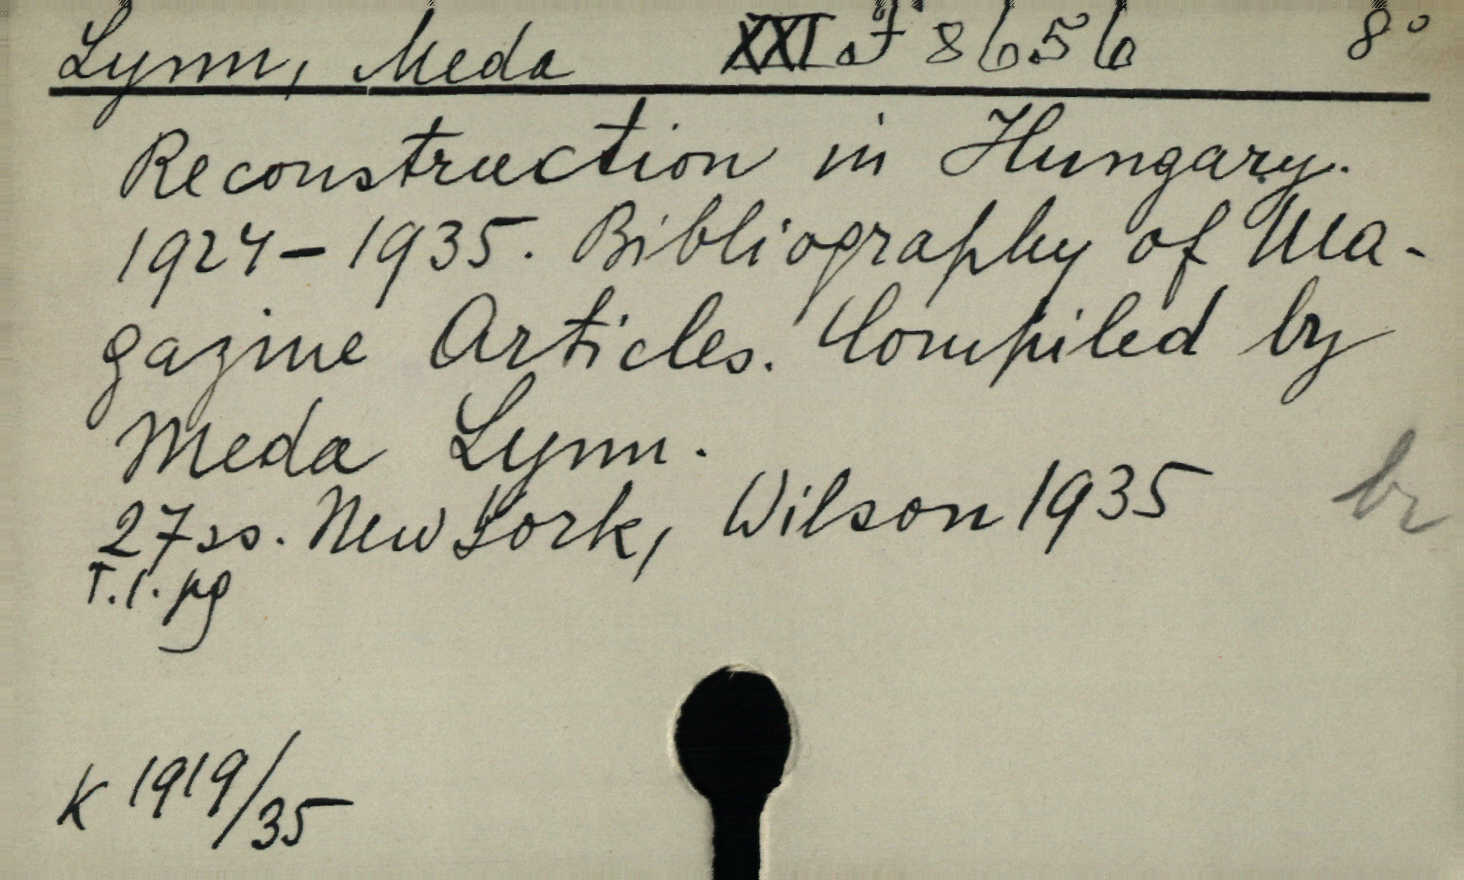 Lynn, Meda XXI.F 8656 8°
Reconstruction in Hungary.
1924-1935. Bibliography of Ma-
gazine Articles. Compiled by
Meda Lynn.
27 ss. New York, Wilson 1935 br
T.1. pg
K 1919/35